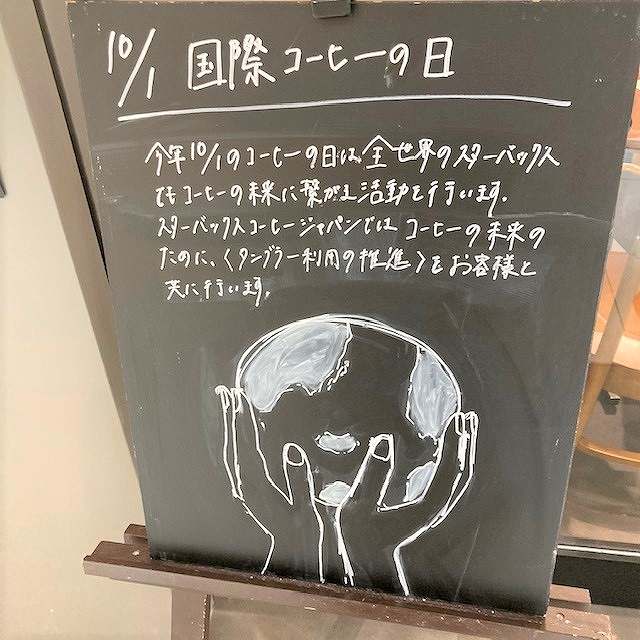 10/1 国際コーヒーの日
今年10/1のコーヒーの日は、全世界のスターバックス
でもコーヒーの未来に繋がる活動を行います。
スターバックスコーヒージャパンでは コーヒーの未来の
ために、〈タンブラー利用の推進〉をお客様と
共に行います。